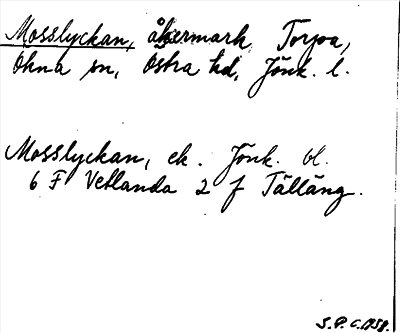 Mosslyckan, åkermark, Torpa,
Ökna sn, Östra hd, Jönk. l.
Mosslyckan, ek. Jönk. bl.
6 F Vetlanda 2 f Tälläng.
S.P.C. 1958.